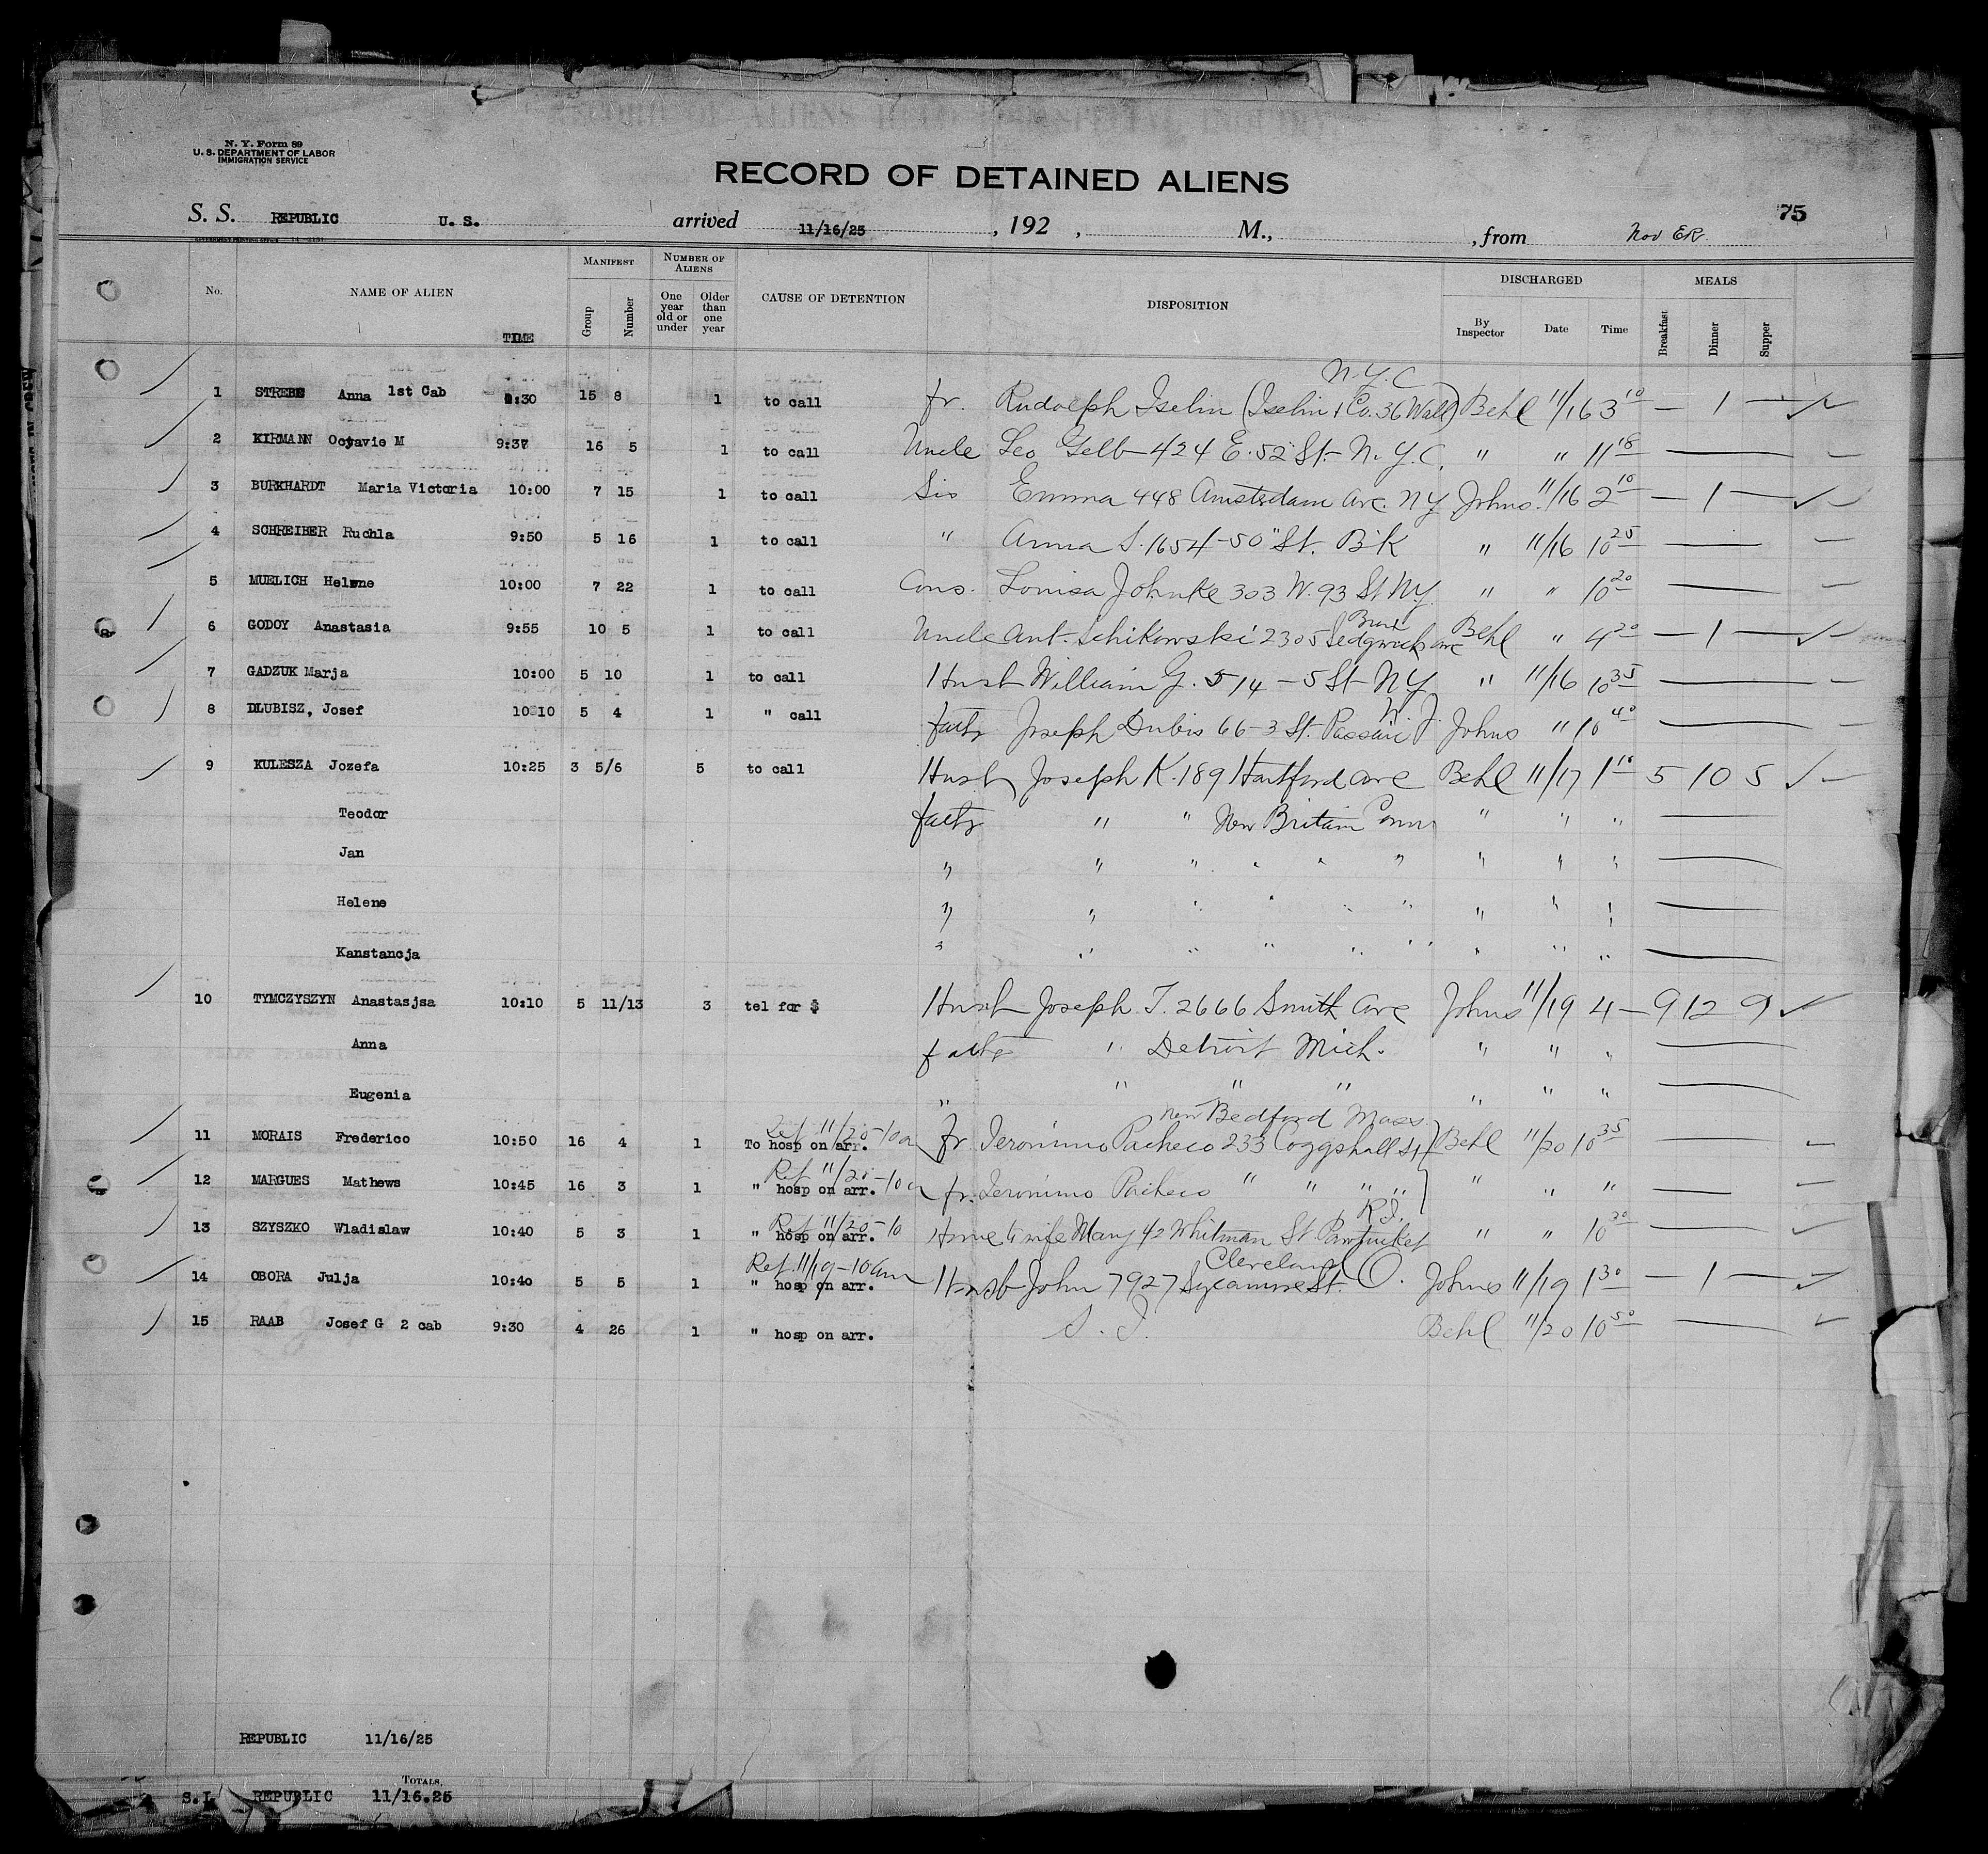 N. Y. Form 89
U. S. DEPARTMENT OF LABOR
IMMIGRATION SERVICE
RECORD OF DETAINED ALIENS
75
S. S. REPUBLIC U. S. arrived 11/16/25, 192 , M., , from Nov ER.
No. NAME OF ALIEN TIME MANIFEST Group Number NUMBER OF ALIENS One year old or under Older than one year CAUSE OF DETENTION DISPOSITION DISCHARGED By Inspector Date Time MEALS Breakfast Dinner Supper
N.Y.C
1 Anna 1st Cab :30 15 8 1 to call fr. Rudolph Iselin (Iselin & Co. 36 Wall) Behl 11/16 3 10 — 1 —
2 KIRMANN Octavie M 9:37 16 5 1 to call Uncle Leo Gelb - 424 E. 52" St. - N.Y.C. " " 11 18 —
3 BURKHARDT Maria Victoria 10:00 7 15 1 to call Sis Emma 448 Amsterdam Ave. N Y Johns 11/16 2 10 — 1 —
4 SCHREIBER Ruchla 9:50 5 16 1 to call " Anna S. 1654-50" St. B'K " 11/16 10 25 —
5 MUELICH Helene 10:00 7 22 1 to call Cous. Louisa Johnke 303 W. 93 St N.Y. " " 10 20 —
6 GODOY Anastasia 9:55 10 5 1 to call Uncle Ant. Schikowski 2305 Sedgwick ave Behl " 4 20 — 1 —
7 GADZUK Marja 10:00 5 10 1 to call Husb William G. 514 - 5 St N Y " 11/16 10 35 —
8 DLUBISZ, Josef 10 10 5 4 1 " call fath Joseph Dubis 66-3 St. Passaic N. J. Johns " 10 40 —
9 KULESZA Jozefa 10:25 3 5/6 5 to call Husb Joseph K. 189 Hartford ave Behl 11/17 1 10 5 10 5
Teodor fath " " New Britain Conn " " " —
Jan " " " " " " " " " —
Helene " " " " " " " " " —
Kanstancja " " " " " " " " " —
10 TYMCZYSZYN Anastasjsa 10:10 5 11/13 3 tel for $ Husb Joseph T. 2666 Smith Ave Johns 11/19 4 — 9 12 9
Anna fath " Detroit Mich. " " " —
Eugenia " " " " " " " —
Ret 11/20-10a New Bedford Mass
11 MORAIS Frederico 10:50 16 4 1 To hosp on arr. fr Jeronimo Pacheco 233 Coggshall St Behl 11/20 10 35 —
Ret 11/20-10a
12 MARGUES Mathews 10:45 16 3 1 " hosp on arr. fr. Jeronimo Pacheco " " " " " " " —
Ret 11/20-10 R.I.
13 SZYSZKO Wladislaw 10:40 5 3 1 " hosp on arr. Home to wife Mary 42 Whitman St Pawtucket " " 10 20 —
Ret. 11/19-10am Cleveland
14 OBORA Julja 10:40 5 5 1 " hosp on arr. Husb John 7927 Sycamore St. O. Johns 11/19 1 30 — 1 —
15 RAAB Josef G 2 cab 9:30 4 26 1 " hosp on arr. S. I. Behl 11/20 10 50 —
REPUBLIC 11/16/25
TOTALS,
S.I. REPUBLIC 11/16.25